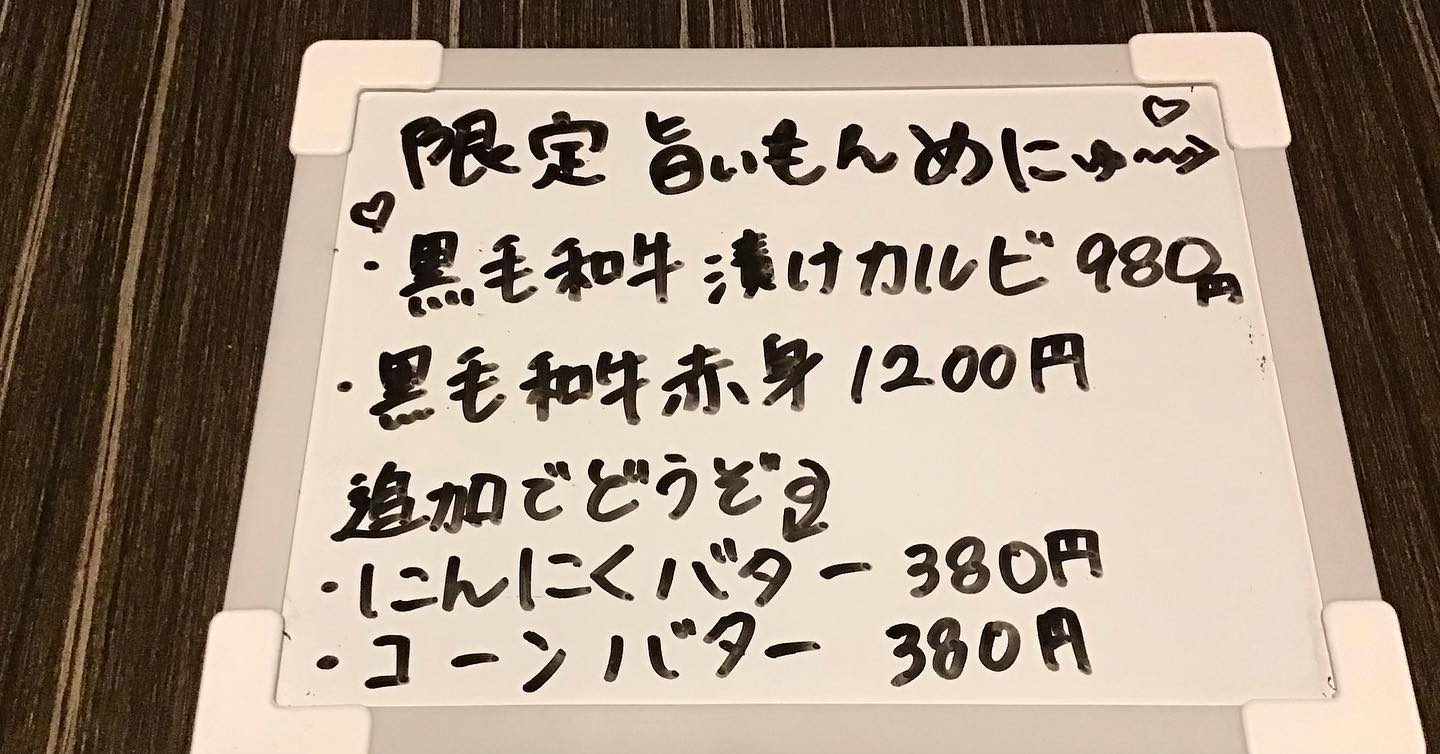 限定 旨いもんめにゅ〜→
・黒毛和牛漬けカルビ 980円
・黒毛和牛赤身 1200円
追加でどうぞ
・にんにくバター 380円
・コーンバター 380円